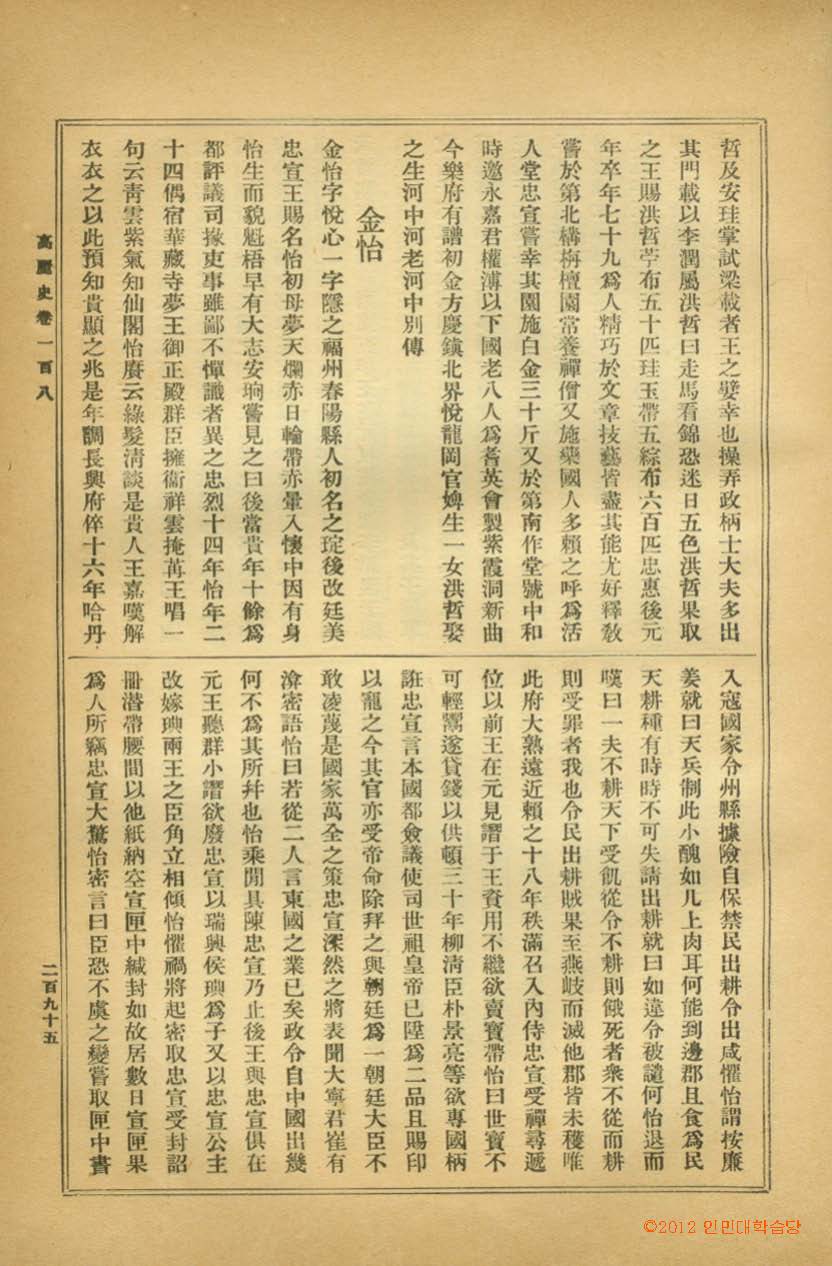 哲及安珪掌試梁載者王之嬖幸也操弄政柄士大夫多出
其門載以李潤屬洪哲曰走馬看錦恐迷日五色洪哲果取
之王賜洪哲苧布五十匹珪玉帶五綜布六百匹忠惠後元
年卒年七十九爲人精巧於文章技藝皆盡其能尤好釋敎
嘗於第北構栴檀園常養禪僧又施藥國人多賴之呼爲活
人堂忠宣嘗幸其園施白金三十斤又於第南作堂號中和
時邀永嘉君權溥以下國老八人爲耆英會製紫霞洞新曲
今樂府有譜初金方慶鎭北界悅龍岡官婢生一女洪哲娶
之生河中河老河中別傳
金怡
金怡字悅心一字隱之福州春陽縣人初名之琔後改廷美
忠宣王賜名怡初母夢天爛赤日輪帶赤暈入懷中因有身
怡生而貌魁梧早有大志安珦嘗見之曰後當貴年十餘爲
都評議司掾吏事雖鄙不憚識者異之忠烈十四年怡年二
十四偶宿華藏寺夢王御正殿群臣擁衛祥雲掩苒王唱一
句云靑雲紫氣知仙閣怡賡云綠髮淸談是貴人王嘉嘆解
衣衣之以此預知貴顯之兆是年調長興府倅十六年哈丹
入寇國家令州縣據險自保禁民出耕令出咸懼怡謂按廉
姜就曰天兵制此小醜如几上肉耳何能到邊郡且食爲民
天耕種有時時不可失請出耕就曰如違令被譴何怡退而
嘆曰一夫不耕天下受飢從令不耕則餓死者衆不從而耕
則受罪者我也令民出耕賊果至燕岐而滅他郡皆未穫唯
此府大熟遠近賴之十八年秩滿召入內侍忠宣受禪尋遞
位以前王在元見譖于王資用不繼欲賣寶帶怡曰世寶不
可輕鬻遂貸錢以供頓三十年柳淸臣朴景亮等欲專國柄
誑忠宣言本國都僉議使司世祖皇帝已陞爲二品且賜印
以寵之今其官亦受帝命除拜之與朝廷爲一朝廷大臣不
敢凌蔑是國家萬全之策忠宣深然之將表聞大寧君崔有
渰密語怡曰若從二人言東國之業已矣政令自中國出幾
何不爲其所幷也怡乘閒具陳忠宣乃止後王與忠宣俱在
元王聽群小譖欲廢忠宣以瑞興侯琠爲子又以忠宣公主
改嫁琠兩王之臣角立相傾怡懼禍將起密取忠宣受封詔
冊潛帶腰間以他紙納空宣匣中緘封如故居數日宣匣果
爲人所竊忠宣大驚怡密言曰臣恐不虞之變嘗取匣中書
高麗史卷一百八
二百九十五
©2012 인민대학습당